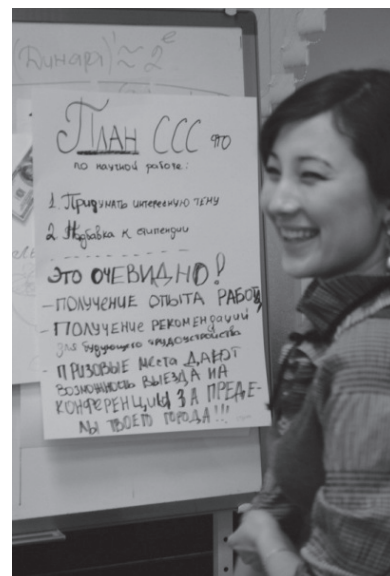 (Динара)' ≈ 2^e
ПЛАН ССС ЭТО
по научной работе:
1. Придумать интересную тему
2. Надбавка к стипендии
ЭТО ОЧЕВИДНО!
- ПОЛУЧЕНИЕ ОПЫТА РАБОТЫ
- ПОЛУЧЕНИЕ РЕКОМЕНДАЦИЙ
для будующего трудоустройства
- ПРИЗОВЫЕ МЕСТА ДАЮТ
ВОЗМОЖНОСТЬ ВЫЕЗДА НА
КОНФЕРЕНЦИИ ЗА ПРЕДЕ-
ЛЫ ТВОЕГО ГОРОДА!!!